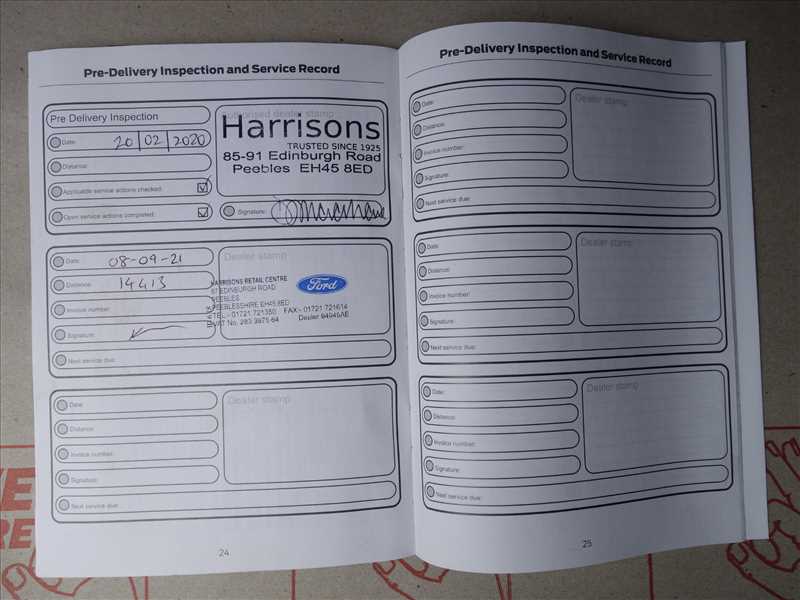 Pre-Delivery Inspection and Service Record
Pre Delivery Inspection
Date: 20 | 02 | 2020
Distance:
Applicable service actions checked:
Open service actions completed:
Authorised dealer stamp
Harrisons
TRUSTED SINCE 1925
85-91 Edinburgh Road
Peebles EH45 8ED
Signature:
Date: 08-09-21
Distance: 14413
Invoice number:
Signature:
Next service due:
Dealer stamp
HARRISONS RETAIL CENTRE
EDINBURGH ROAD
PEEBLES
PEEBLESSHIRE EH45 8ED
TEL:- 01721 721350 FAX:- 01721 721614
VAT No. 263 3975 64 Dealer
Ford
Date:
Distance:
Invoice number:
Signature:
Next service due:
Dealer stamp
24
Pre-Delivery Inspection and Service Record
Date:
Distance:
Invoice number:
Signature:
Next service due:
Dealer stamp
Date:
Distance:
Invoice number:
Signature:
Next service due:
Dealer stamp
Date:
Distance:
Invoice number:
Signature:
Next service due:
Dealer stamp
25